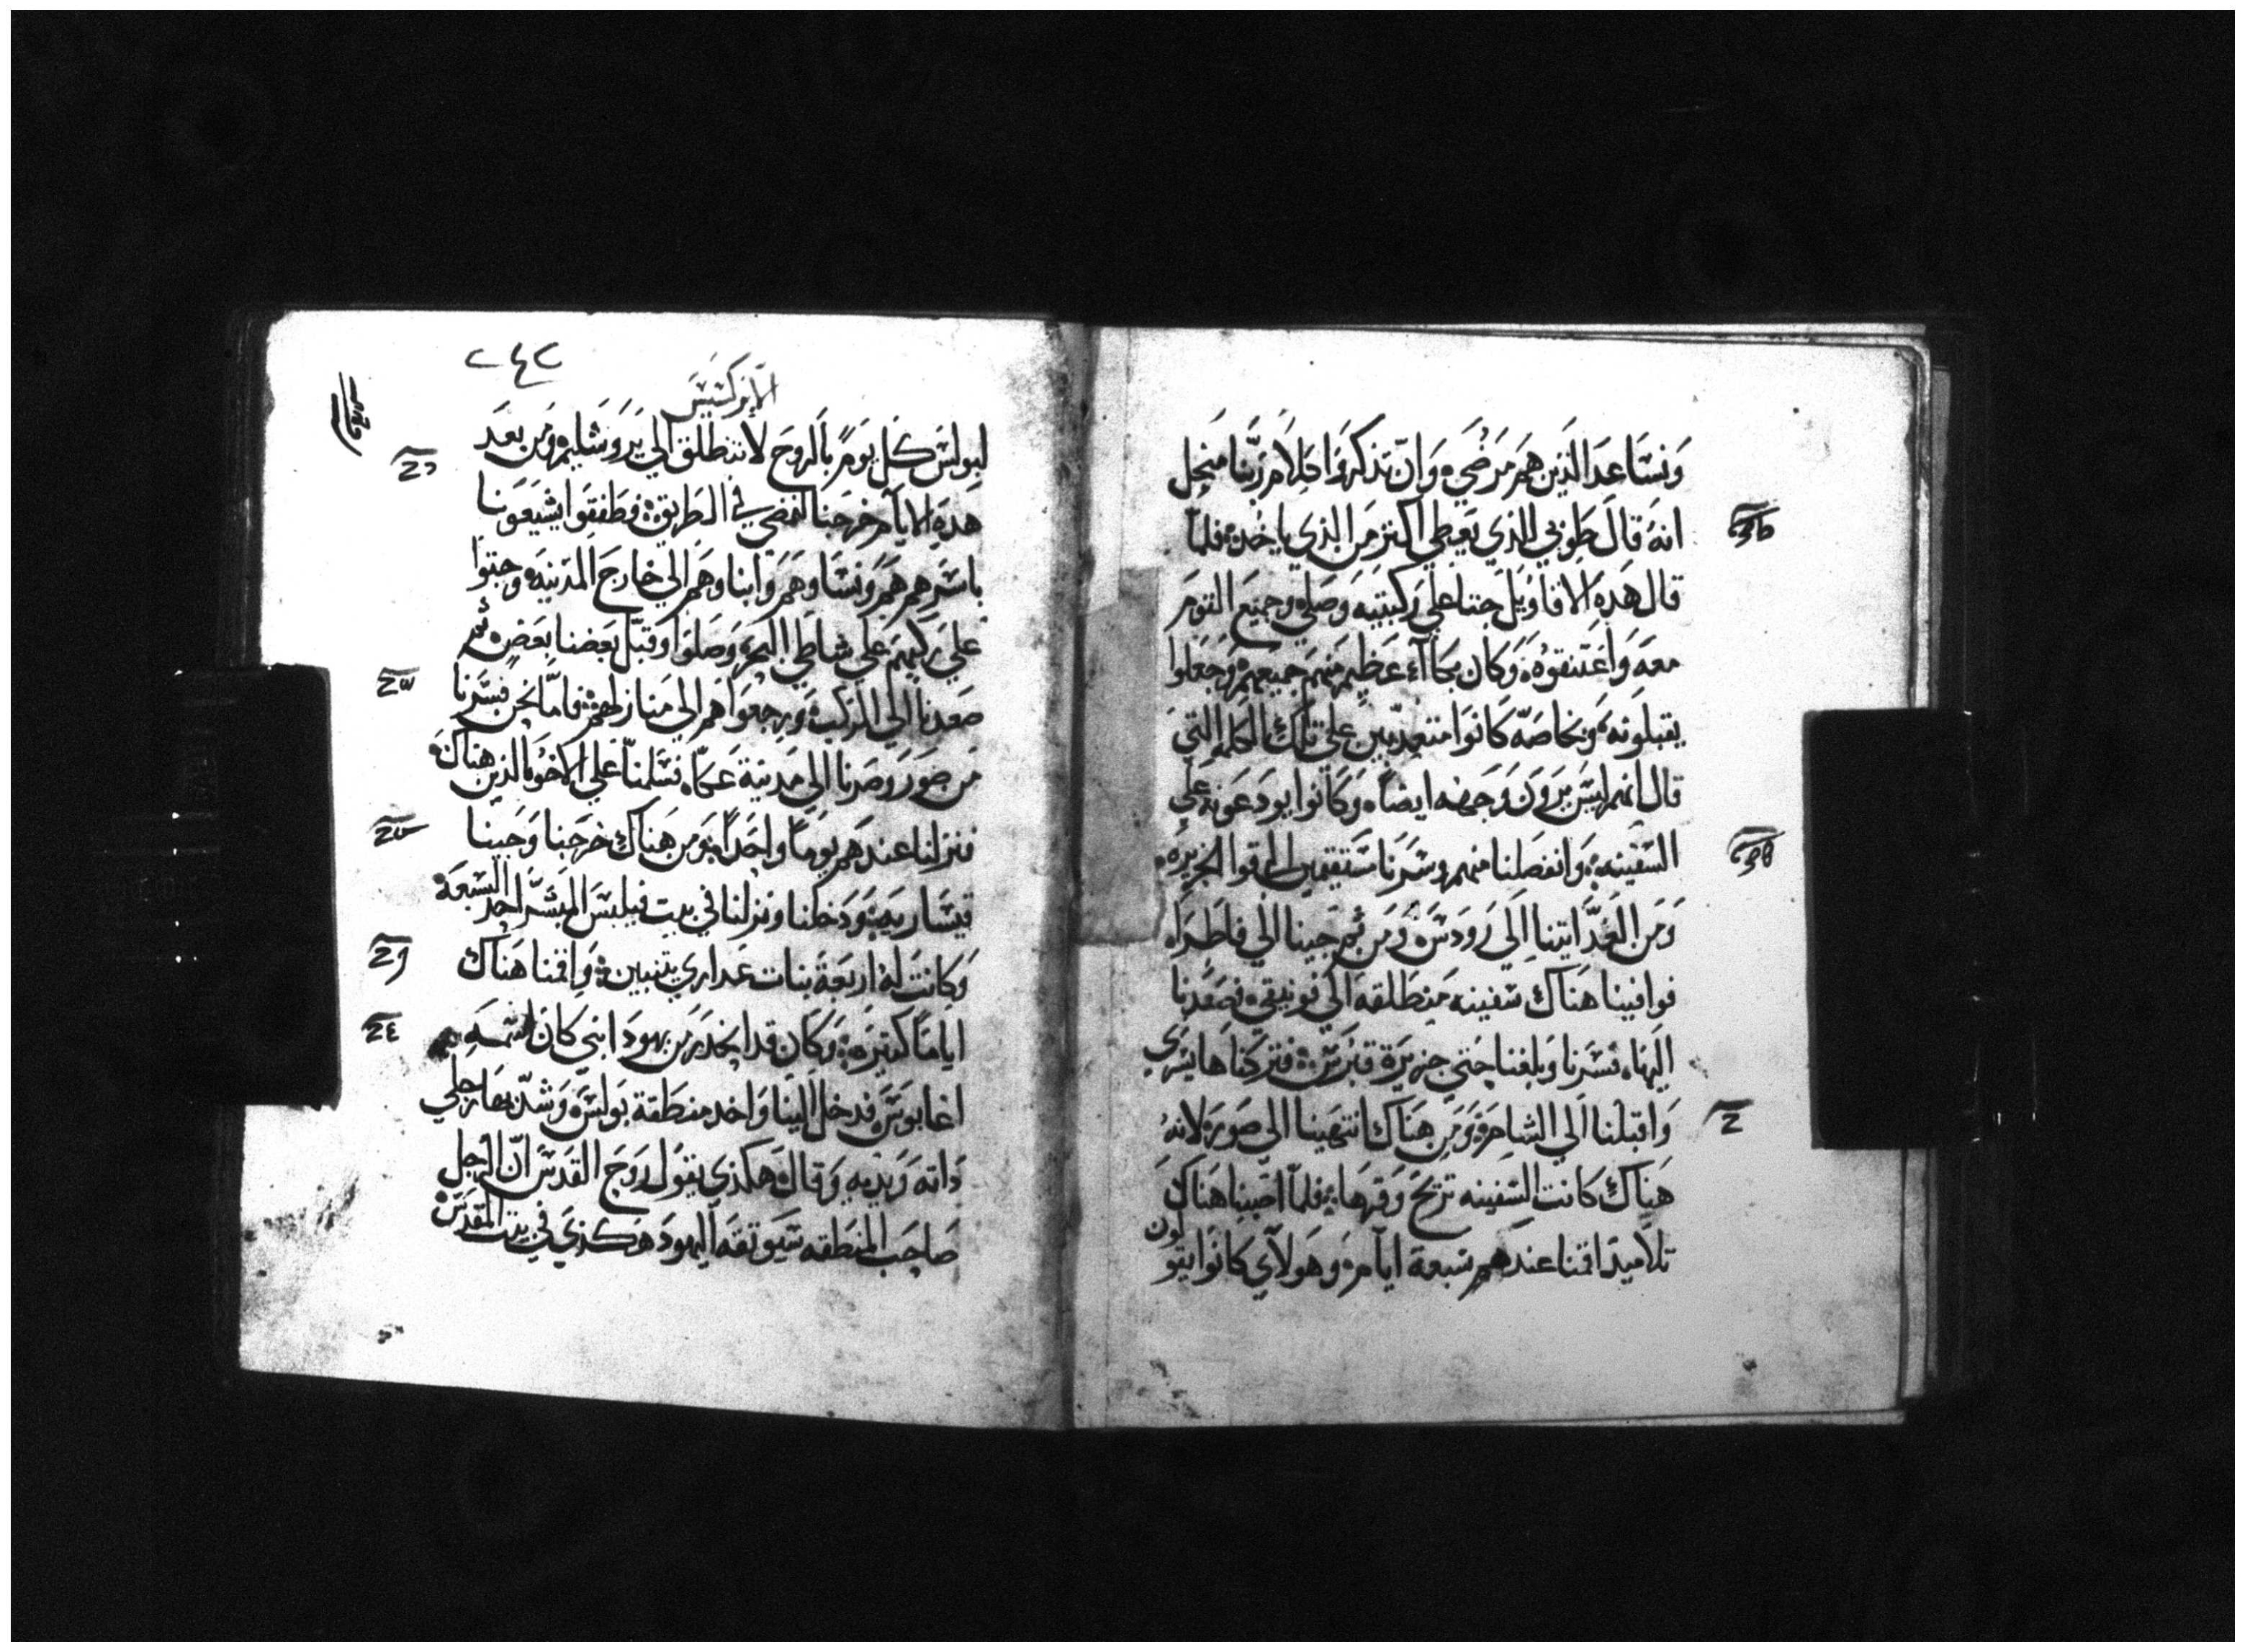 وَنسَاعدَ الذَين هَم مَرضَي وَان تذكروَا كلاَم رَبّنا من اجل
انهُ قالَ طَوبَي للذي يَعطي اكثر مَن الذي ياخُده فلمّا
قال هَدهِ الاقاويَل جتَا علَي رَكبتيه وَصَلي وجميَع القوَم
معهَ وَاعَتنقوهُ وَكان بكاآء عَظيم منهم جميعهم وَجَعلوا
يقبلونهُ وبخاصَهّ كَانوَا متعدبين علي تلكَ الكلمه التي
قال انهم ليسَ يرَوَن وَجهه ايضاً وَكانوا يودعَونهَ علَي
السَفينه وَانفصَلنا منهم وسَرنا مسَتقيمين الي قوا الجزيرَه
وَمَن الغدّ اتينا الَي رَودسَ وَمَن ثم جينا الي فاطَرَا
فوافينا هنَاك سَفينه مَنطَلقهَ الي فونيقي فصَعَدنا
اليهَا فسَرنا وَبلغنا حَتي جزيرَة قبرَسَ فتركناهَا يسَري
وَاقبلنا الَي الشاَم وَمَن هنَاك انتهينا الي صَورَ لانهُ
هنَاكَ كانت السَفينه تريحَ وَقرهَا فلمّا اصَبنا هنَاك
تلاميدَ اقمنا عندَهم سَبعة ايآم وَهَولآي كانوا يقو
لون
٢٤٢
الابركسيسَ
لبولسَ كل يوَم بالروحَ لا تنطلق الي يرَوشَليم وَمن بعَد
هدهِ الايآم خرَجنا لنمضي في الطرَيق فطَفقوا يشيَعوَنا
باسَرهم هم وَنسَاوهَم وَابناوهم الي خارجَ المدَينه وجتوا
علي رَكبهم علَي شاطَي البحر وَصَلوا وَقبّل بعَضنا بعَضٍ ثم
صَعَدنا الي المرَكب وَرجعوَا هم الي منَازلهم فامّا نحن فسَرنا
مَن صَور وَصرنا الي مَدينة عَكا فسَلمنَا علَي الاخوه الذين هناك
فنزلنا عندَهم يوَماً واحَداً وَمن هَناك خرَجنا وَجينا
قيسَاريه وَدخلنا ونزلنا في بيت فيلبسَ المبَشّر احدَ السَبعَه
وَكانت لهُ اربعَة بنات عَداري يتنبين وَاقمنا هنَاك
ايامًا كثيرَه وَكان قد انحَدرَ من يهودَا نبي كانَ اسَمهَ
اغابوسَ فدخل الينا وَاخد منطَقة بولسَ وَشدّ بهَا رجلي
دَاته وَيَديه وَقالَ هَكذي يقول رَوحَ القدَس انّ الرَجل
صَاحَب المنطَقه سَيوثقهَ اليهودَ هَكذي في بيت المقدَسَ